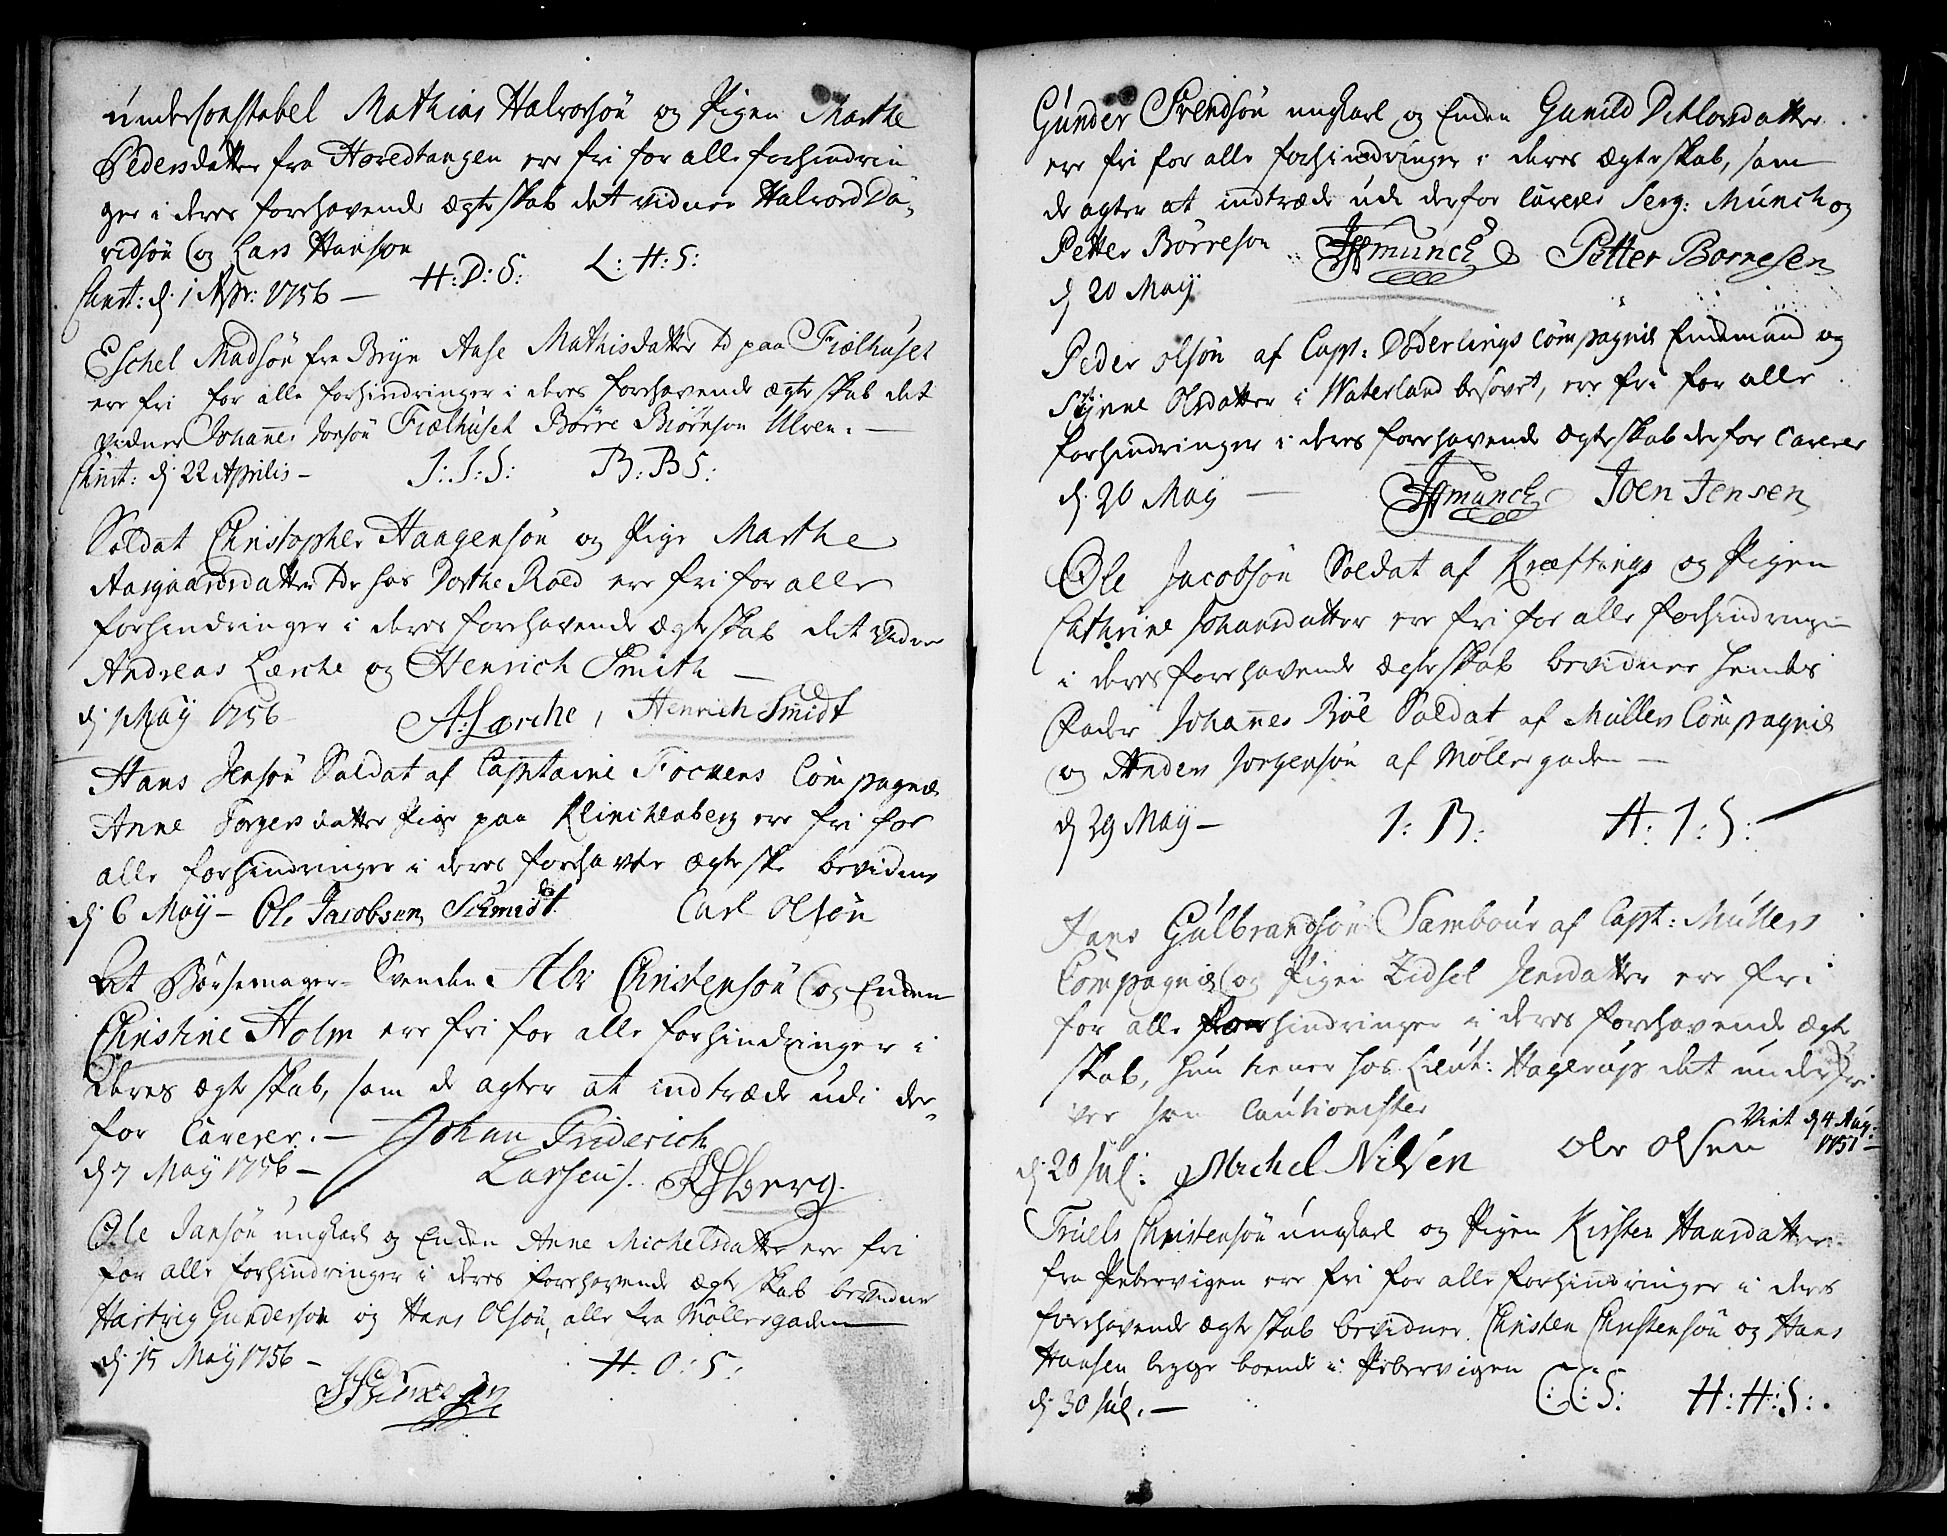 Underconstabel Mathias Halvorsøn og Pigen Marthe
Pedersdatter fra Hovedtangen ere fri for alle forhindrin
ger i deres forehavende ægteskab det vidner Halvord Da-
vidsøn og Lars Hanson
Christ: d: 1 Apr: 1756 — H: D: S: L: H: S:
Eschel Madsøn fra Bryn Aase Mathisdatter td paa Fiælhuset
ere fri for alle forhindringer i deres forehavende ægteskab det
vidner Johanes Jonsøn Fiælhuset Børre Biørnson Ulven. —
Christ: d: 22 Aprilis — J: J: S: B: B S:
Soldat Christopher Haagensøn og Pige Marthe
Aasgaardsdatter hos Dorthe Roed ere fri for alle
forhindringer i deres forehavende ægteskab det vidner
Andreas Lærche og Henrich Smith —
d: 1 May 1756 A: Lærche, Henrich Smidt
Hans Jensøn Soldat af Captaine Fockens Compagnie
Anne Torgersdatter Pige paa Klinchenberg ere fri for
alle forhindringer i deres ægte bevidner
d: 6 May — Ole Jacobsen Schmidt. Carl Olsøn
At Børsemager-Svenden Christensøn og Enken
Christine Holm ere fri for alle forhindringer i
deres ægteskab, som de agter at indtræde udi der-
for Caverer. — Johan Friderich
d: 7 May 1756 — Larsen.
Ole Jansøn ungkarl og Enken Anne Michelsdatter ere fri
for alle forhindringer i deres forehavende ægteskab bevidner
Hartvig Gunderson og Hans Olsøn, alle fra Møllergaden —
d: 15 May 1756 — H: O: S:
Gunder Svendsøn ungkarl og Enken Gunild Ditlovsdatter
ere fri for alle forhindringer i deres ægteskab, som
de agter at indtræde udi derfor Caverer Serg: Münch og
Petter Børreson Münch Petter Børresen
d: 20 May
Peder Olsøn af Capt: Døderlings Compagnie Enkemand og
Synne Olsdatter i Waterland besovet, ere fri for alle
forhindringer i deres forehavende ægteskab derfor Caverer
d: 20 May — Münch Joen Jensen
Ole Jacobsøn Soldat af Kræftings og Pigen
Cathrine Johansdatter ere fri for alle forhindringer
i deres forehavende ægteskab bevidner hendes
Fader Johanes Bøe Soldat af Müllers Compagnie
og Anders Jorgensøn af Møllergaden —
d: 29 May — J: B: A: J: S:
Hans Gulbrandsøn Tambour af Capt: Müllers
Compagnie og Pigen Zidsel Jensdatter ere fri
for alle forhindringer i deres forehavende ægte
skab, hun tiener hos Lieut: Hagerup det underskri
ver som Cautionister
Viet d: 4 Aug:
1757 —
d: 20 Jul: Michel Nilsen Ole Olsen
Truels Christensøn ungkarl og Pigen Kirsten Hansdatter
fra Pebervigen ere fri for alle forhindringer i deres
forehavende ægteskab bevidner Christen Christensøn og Hans
Hansen begge boende i Pebervigen
d: 30 Jul. — C: C: S: H: H: S: